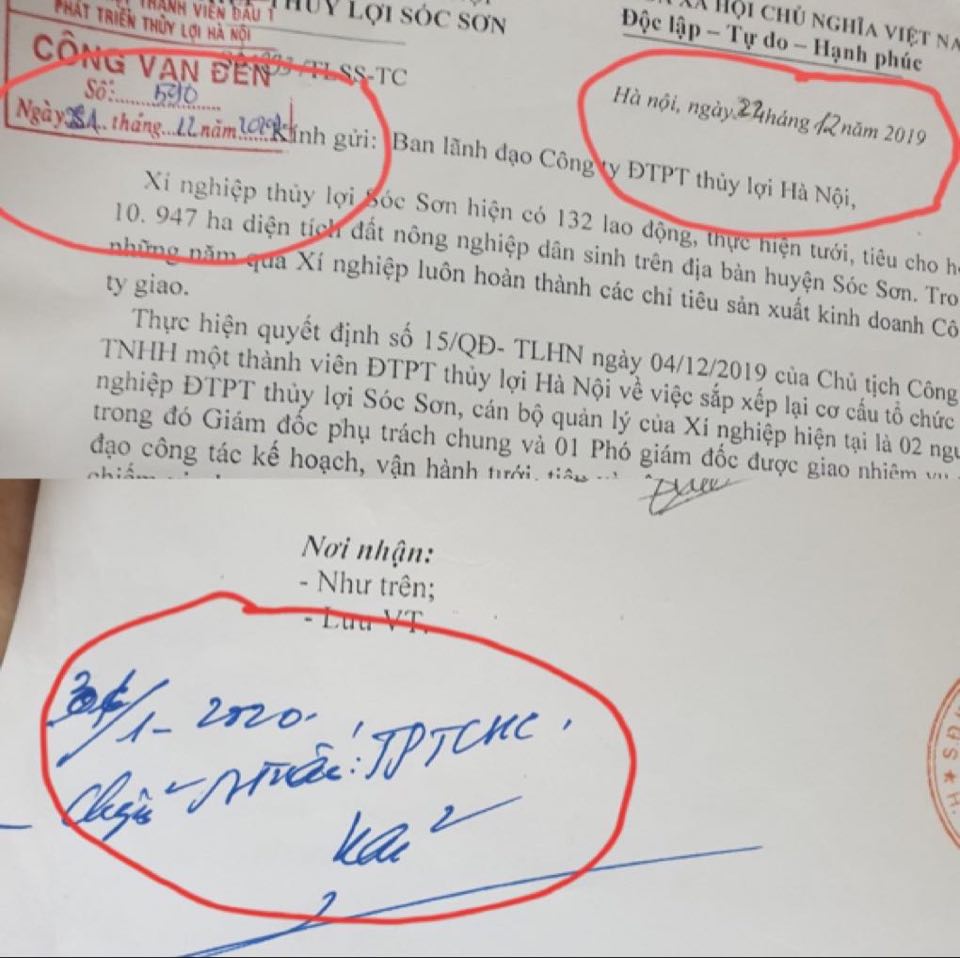 THÀNH VIÊN ĐẦU T
PHÁT TRIỂN THỦY LỢI HÀ NỘI
CÔNG VĂN ĐẾN
Số: 590
Ngày tháng 12 năm
THỦY LỢI SÓC SƠN
/TLSS-TC
XÃ HỘI CHỦ NGHĨA VIỆT NA
Độc lập – Tự do – Hạnh phúc
Hà nội, ngày 24 tháng 12 năm 2019
Kính gửi: Ban lãnh đạo Công ty ĐTPT thủy lợi Hà Nội,
Xí nghiệp thủy lợi Sóc Sơn hiện có 132 lao động, thực hiện tưới, tiêu cho h
10. 947 ha diện tích đất nông nghiệp dân sinh trên địa bàn huyện Sóc Sơn. Tro
những năm qua Xí nghiệp luôn hoàn thành các chỉ tiêu sản xuất kinh doanh Cô
ty giao.
Thực hiện quyết định số 15/QĐ- TLHN ngày 04/12/2019 của Chủ tịch Công
TNHH một thành viên ĐTPT thủy lợi Hà Nội về việc sắp xếp lại cơ cấu tổ chức
nghiệp ĐTPT thủy lợi Sóc Sơn, cán bộ quản lý của Xí nghiệp hiện tại là 02 ngư
trong đó Giám đốc phụ trách chung và 01 Phó giám đốc được giao nhiệm vụ
đạo công tác kế hoạch, vận hành tưới, tiêu
Nơi nhận:
- Như trên;
- Lưu VT.
/1- 2020.
TPTCHC.